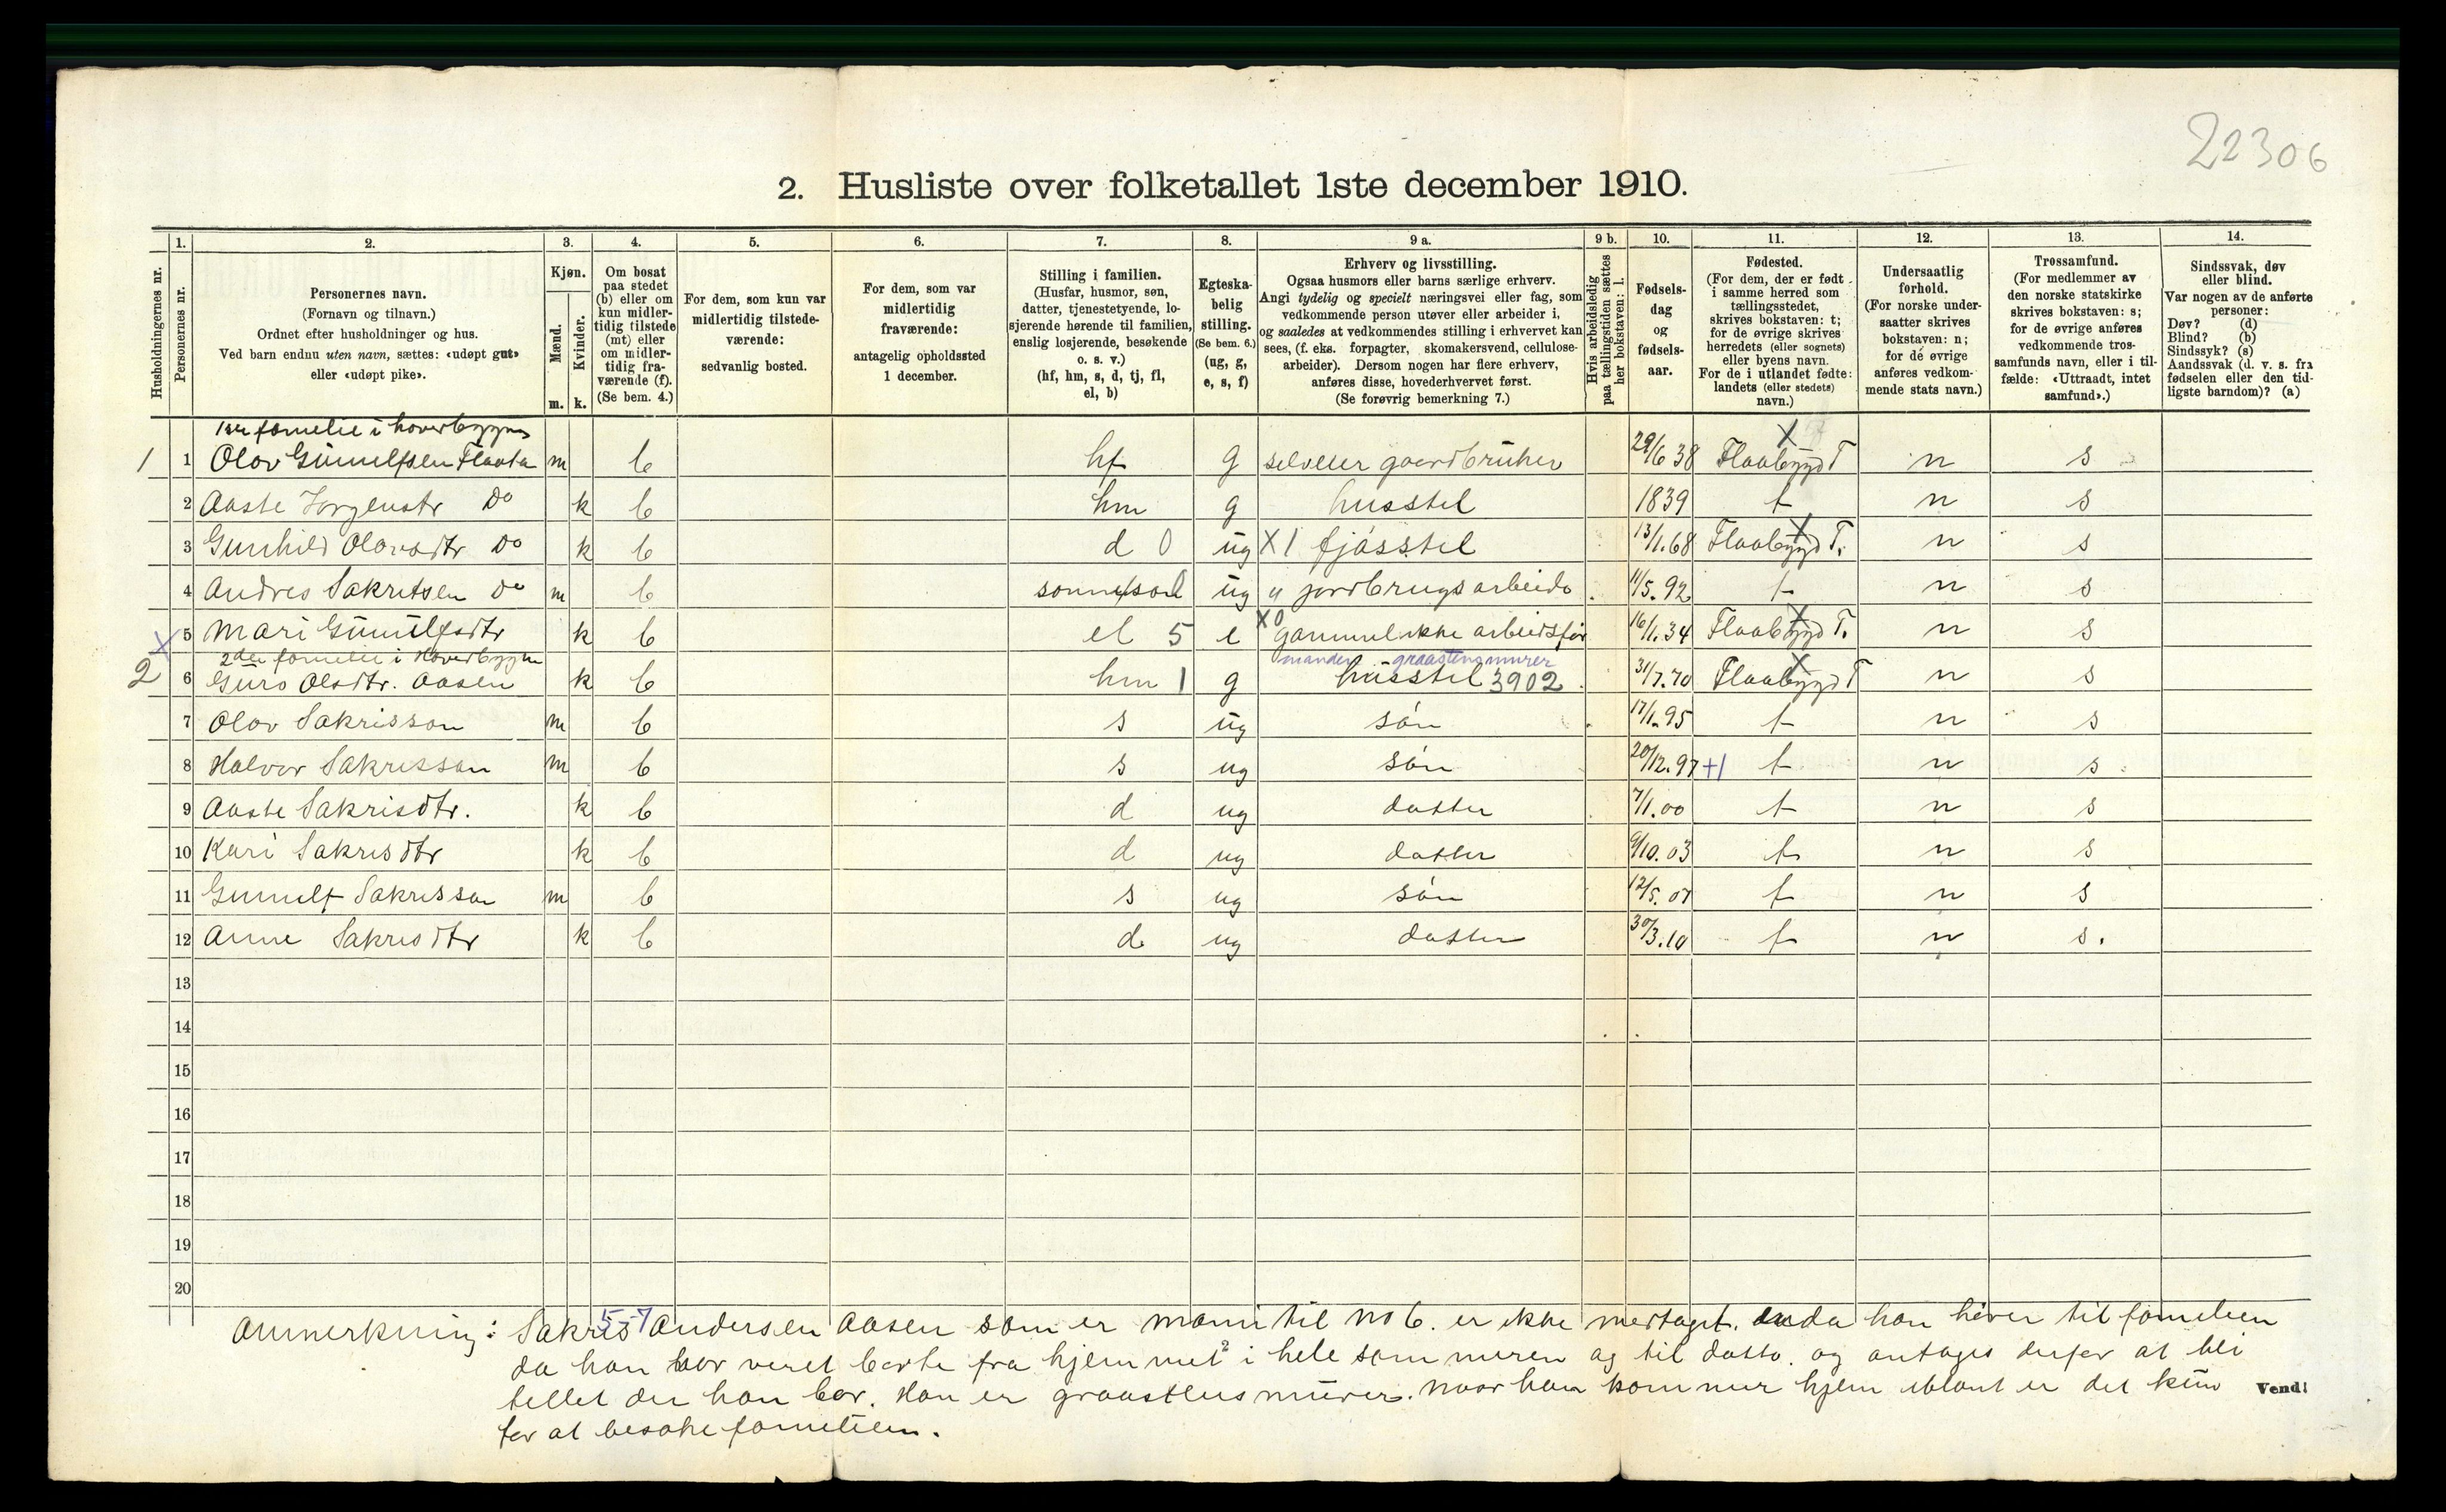 22306
2. Husliste over folketallet 1ste december 1910.
Husholdningernes nr.
1.
Personernes nr.
2.
Personernes navn.
(Fornavn og tilnavn.)
Ordnet efter husholdninger og hus.
Ved barn endnu uten navn, sættes: «udøpt gut»
eller «udøpt pike».
3.
Kjøn.
Mænd.
Kvinder.
m. k.
4.
Om bosat
paa stedet
(b) eller om
kun midler-
tidig tilstede
(mt) eller
om midler-
tidig fra-
værende (f).
(Se bem. 4.)
5.
For dem, som kun var
midlertidig tilstede-
værende:
sedvanlig bosted.
6.
For dem, som var
midlertidig
fraværende:
antagelig opholdssted
1 december.
7.
Stilling i familien.
(Husfar, husmor, søn,
datter, tjenestetyende, lo-
sjerende hørende til familien,
enslig losjerende, besøkende
o. s. v.)
(hf, hm, s, d, tj, fl,
el, b)
8.
Egteska-
belig
stilling.
(Se bem. 6.)
(ug, g,
e, s, f)
9 a.
Erhverv og livsstilling.
Ogsaa husmors eller barns særlige erhverv.
Angi tydelig og specielt næringsvei eller fag, som
vedkommende person utøver eller arbeider i,
og saaledes at vedkommendes stilling i erhvervet kan
sees, (f. eks. forpagter, skomakersvend, cellulose-
arbeider). Dersom nogen har flere erhverv,
anføres disse, hovederhvervet først.
(Se forøvrig bemerkning 7.)
9 b.
Hvis arbeidsledig
paa tællingstiden sættes
her bokstaven: l.
10.
Fødsels-
dag
og
fødsels-
aar.
11.
Fødested.
(For dem, der er født
i samme herred som
tællingsstedet,
skrives bokstaven: t;
for de øvrige skrives
herredets (eller sognets)
eller byens navn.
For de i utlandet fødte:
landets (eller stedets)
navn.)
12.
Undersaatlig
forhold.
(For norske under-
saatter skrives
bokstaven: n;
for de øvrige
anføres vedkom-
mende stats navn.)
13.
Trossamfund.
(For medlemmer av
den norske statskirke
skrives bokstaven: s;
for de øvrige anføres
vedkommende tros-
samfunds navn, eller i til-
fælde: «Uttraadt, intet
samfund».)
14.
Sindssvak, døv
eller blind.
Var nogen av de anførte
personer:
Døv? (d)
Blind? (b)
Sindssyk? (s)
Aandssvak (d. v. s. fra
fødselen eller den tid-
ligste barndom)? (a)
1ste famelie i hoverbygn
1 1 Olav Gunulfsen Flaata m b hf g selveier gaardbruker 29/6 38 Flaabygd T n s
2 Aaste Jorgenstr Do k b hm g husstel 1839 t n s
3 Gunhild Olavsdtr Do k b d 0 ug X 1 fjøsstel 13/1.68 Flaabygd T. n s
4 Andres Sakritsen Do m b sonneson ug " jordbrugsarbeide 11/5.92 t n s
X 5 Mari Gunulfsdtr k b el 5 e X0 gammel ikke arbeidsfør 16/1.34 Flaabygd T. n s
2den famelie i Hoverbygn
manden graastensmurer
2 6 Guro Olsdtr. Aasen k b hm 1 g husstel 3902 31/7.70 Flaabygd T n s
7 Olav Sakrisson m b s ug søn 17/1.95 t n s
8 Halvor Sakrisson m b s ug søn 20/12.97 +1 t n s
9 Aaste Sakrisdtr. k b d ug datter 7/1.00 t n s
10 Kari Sakrisdtr k b d ug datter 9/10.03 t n s
11 Gunulf Sakrisson m b s ug søn 12/5.07 t n s
12 Anne Sakrisdtr k b d ug datter 30/3.10 t n s.
13
14
15
16
17
18
19
20
5-7
Anmerkning: Sakris Andersen Aasen som er mann til no 6. er ikke medtaget. enda han hører til famelien
da han har veret borte fra hjemmet i hele sommeren og til datto. og antages derfor at bli
tellet der han bor. Han er graastensmurer. Naar han kommer hjem iblant er det kun
for at besøke famelien.
Vend!